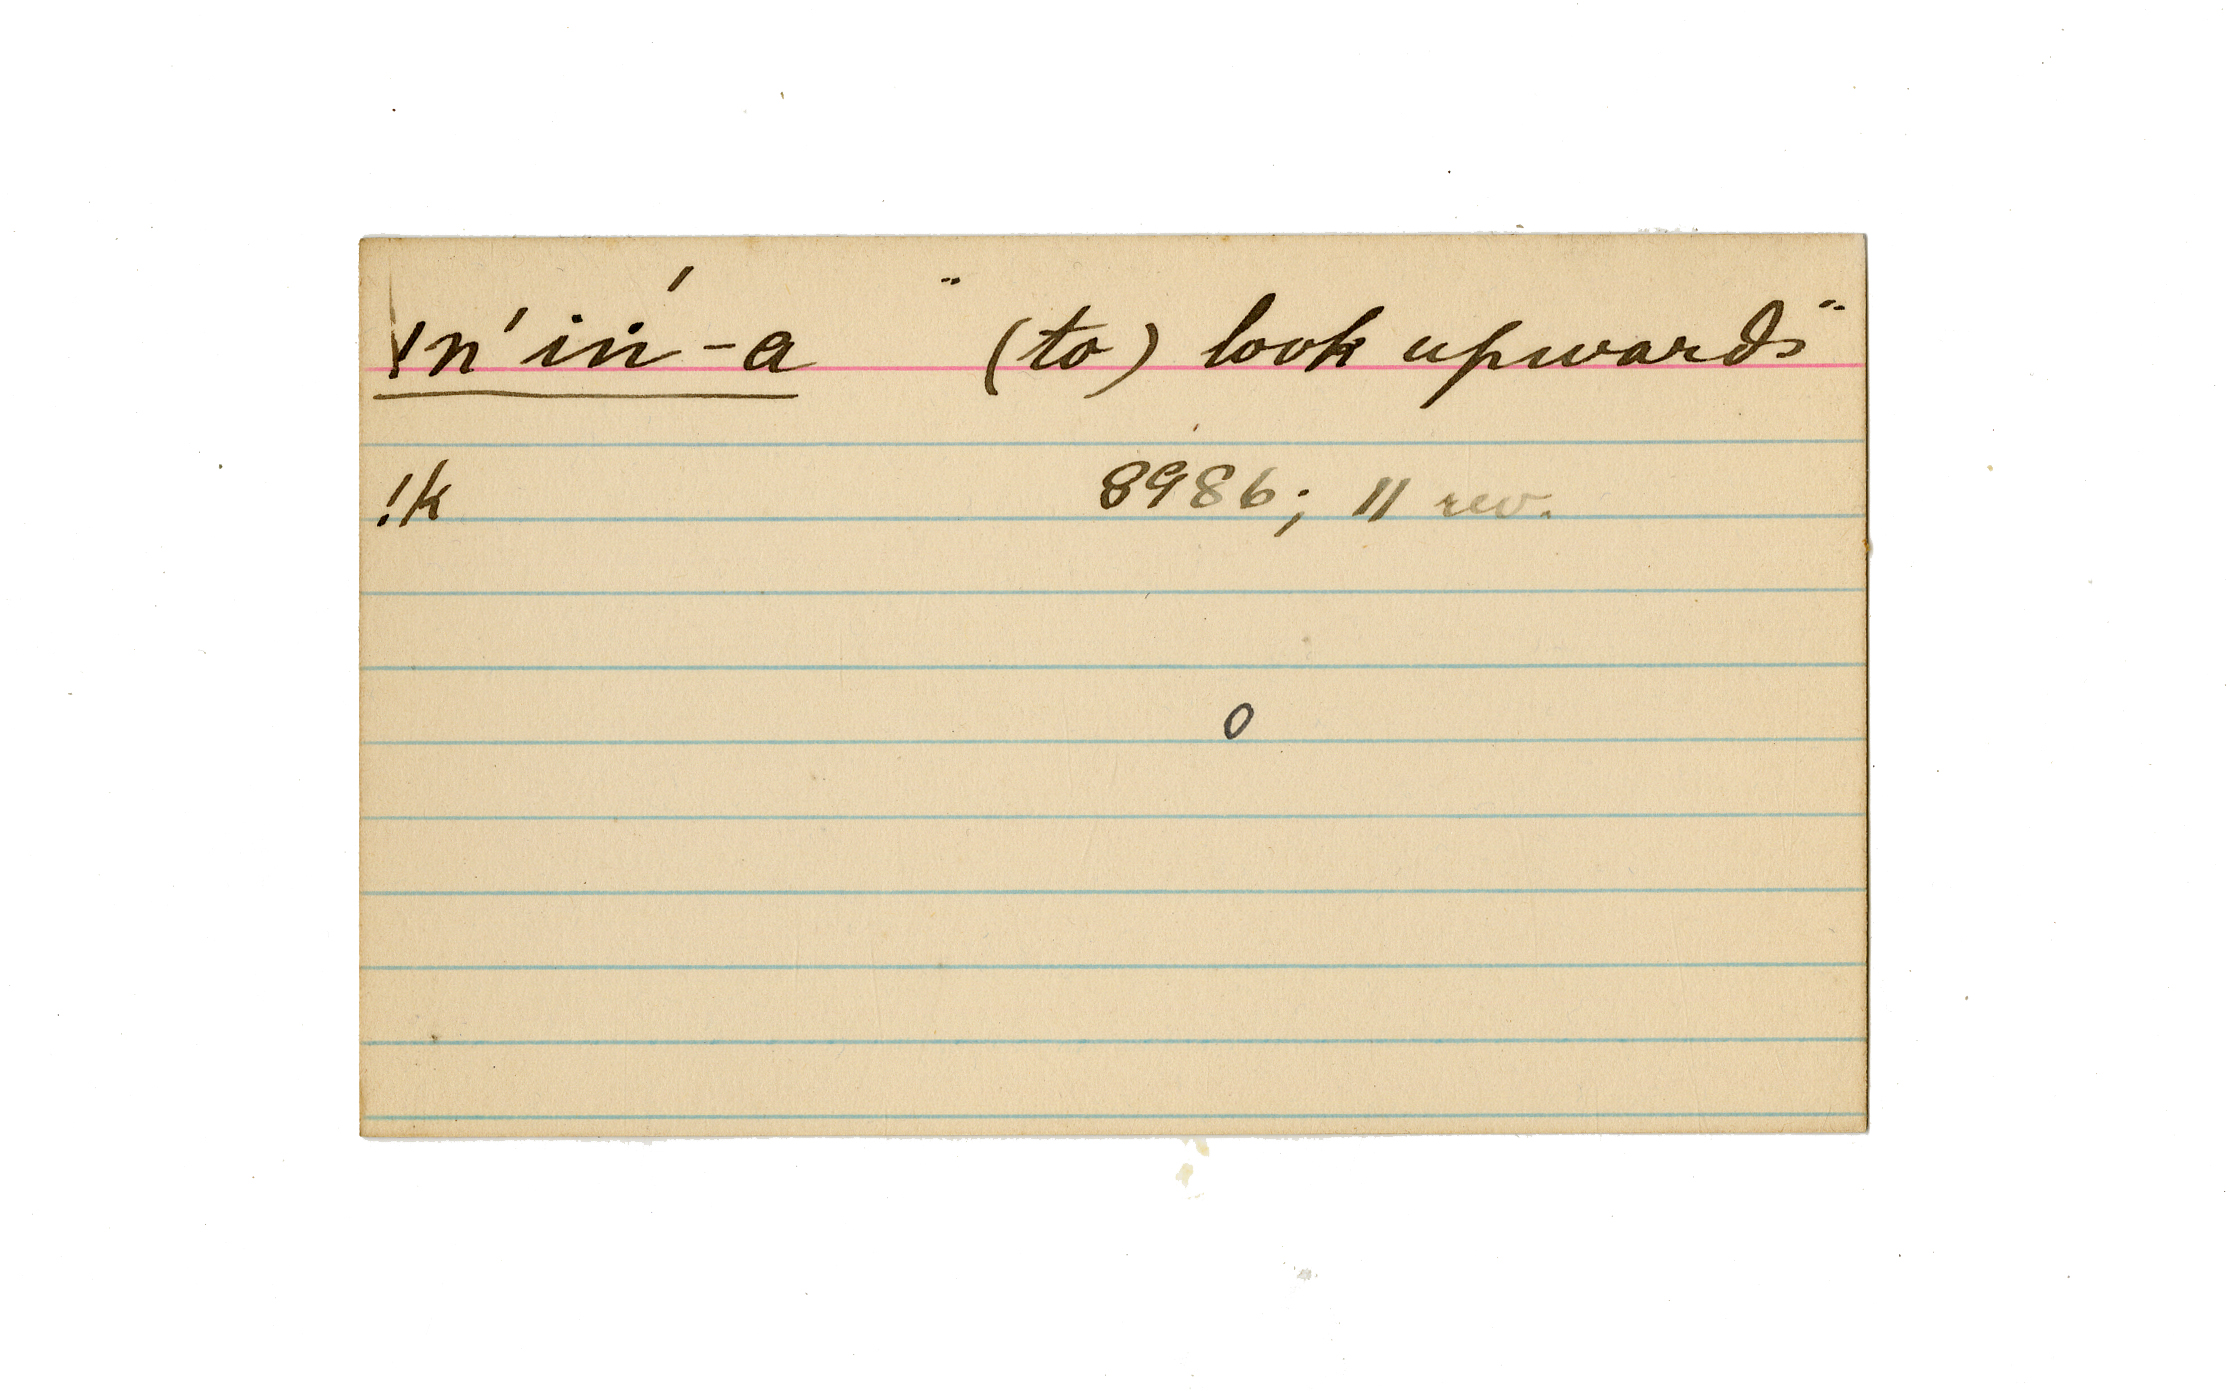 ǃn'iń-a "(to) look upwards"
!k 8986; 11 rev.
0